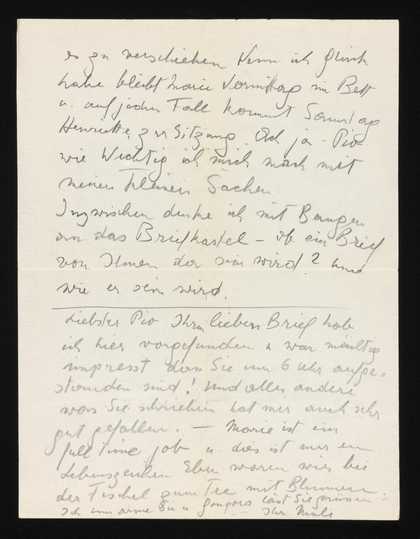 es zu verschieben Wenn ich Glück
habe bleibt Marie Vormittag im Bett
u. auf jeden Fall kommt Samstag
Henriette zur Sitzung. Ach ja - Pio
wie Wichtig ich mich mach mit
meinen kleinen Sachen
Inzwischen denke ich mit Bangen
an das Briefkastel - ob ein Brief
von Ihnen da sein wird? und
wie er sein wird.
Liebster Pio Ihren lieben Brief habe
ich hier vorgefunden u war mächtig
impresst dass Sie um 6 Uhr aufge-
standen sind! Und alles andere
was Sie schrieben hat mir auch sehr
gut gefallen. - Marie ist ein
full time job u. dies ist nur ein
Lebenszeichen Eben waren wir bei
der Tischel zum Tee mit Blumen
lässt Sie grüssen
Ich umarme Sie u Ihre